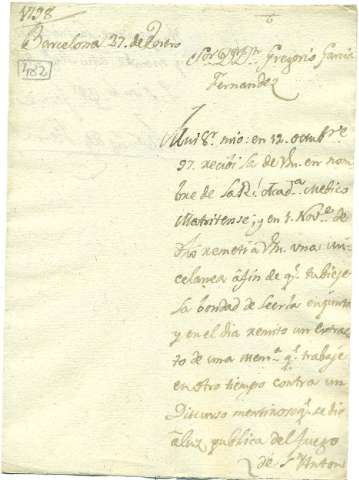 1798
Barcelona 27. de Enero
182
Sor Dn Gregorio Garcia
Fernandez
Mui Sr. mio: en 12 octubre
97. recibi la de Vm. en nom
bre de la Rl. Acada. Medico
Matritense; y en 1. Nove. de
remetí a Vm. una mis
celanea á fin de qe. tubiese
la bondad de leerla en junta
y en el dia remito un extrac
to de una mema. qe. trabaje
en otro tiempo contra un
Discurso qe. se dio
á luz publica del fuego
de Sn. Anton